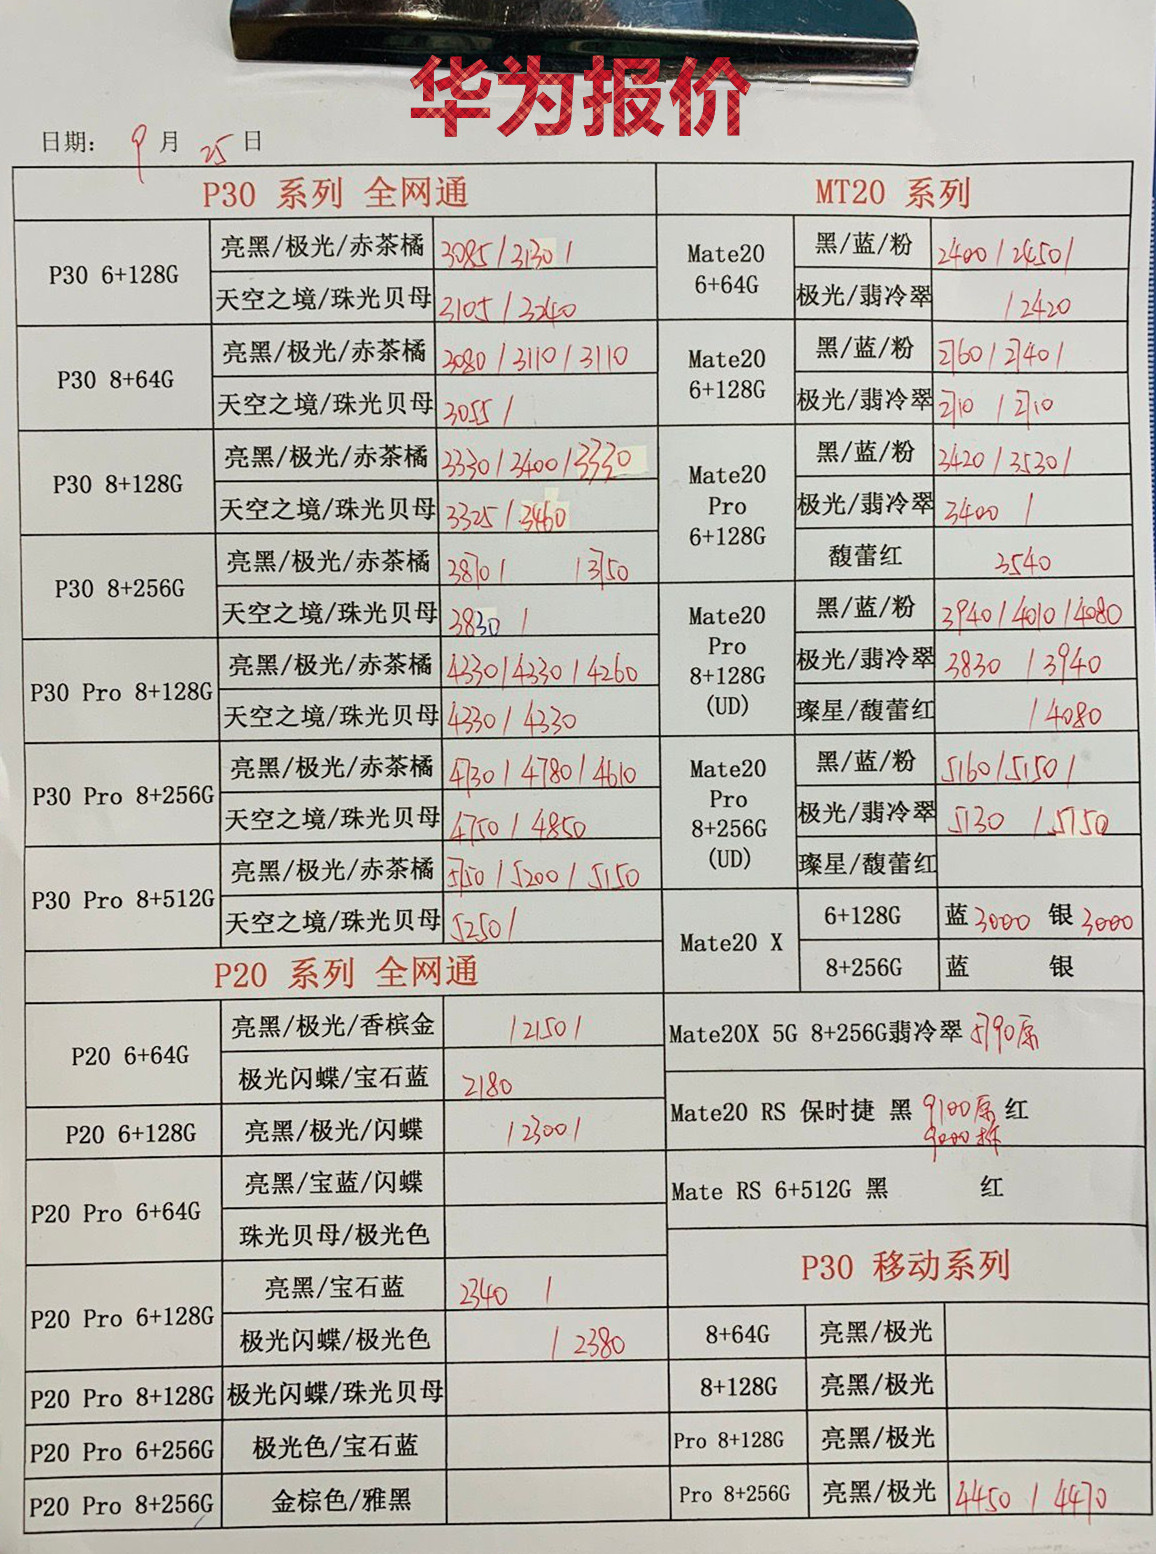 华为报价
日期: 9 月 25 日
P30 系列 全网通
P30 6+128G
亮黑/极光/赤茶橘 3085/3130/
天空之境/珠光贝母 3105/3240
P30 8+64G
亮黑/极光/赤茶橘 3080/3110/3110
天空之境/珠光贝母 3055/
P30 8+128G
亮黑/极光/赤茶橘 3330/3400/3330
天空之境/珠光贝母 3325/3460
P30 8+256G
亮黑/极光/赤茶橘 3870/ /3750
天空之境/珠光贝母 3830 /
P30 Pro 8+128G
亮黑/极光/赤茶橘 4330/4330/4260
天空之境/珠光贝母 4330/4330
P30 Pro 8+256G
亮黑/极光/赤茶橘 4730/4780/4610
天空之境/珠光贝母 4750/4850
P30 Pro 8+512G
亮黑/极光/赤茶橘 5150/5200/5150
天空之境/珠光贝母 5250/
P20 系列 全网通
P20 6+64G
亮黑/极光/香槟金 /2150/
极光闪蝶/宝石蓝 2180
P20 6+128G 亮黑/极光/闪蝶 /2300/
P20 Pro 6+64G
亮黑/宝蓝/闪蝶
珠光贝母/极光色
P20 Pro 6+128G
亮黑/宝石蓝 2340 /
极光闪蝶/极光色 /2380
P20 Pro 8+128G 极光闪蝶/珠光贝母
P20 Pro 6+256G 极光色/宝石蓝
P20 Pro 8+256G 金棕色/雅黑
MT20 系列
Mate20
6+64G
黑/蓝/粉 2400/2450/
极光/翡冷翠 /2420
Mate20
6+128G
黑/蓝/粉 2760/2740/
极光/翡冷翠 2710 /2710
Mate20
Pro
6+128G
黑/蓝/粉 3420/3530/
极光/翡冷翠 3400 /
馥蕾红 3540
Mate20
Pro
8+128G
(UD)
黑/蓝/粉 3940/4010/4080
极光/翡冷翠 3830 /3940
璨星/馥蕾红 /4080
Mate20
Pro
8+256G
(UD)
黑/蓝/粉 5160/5150/
极光/翡冷翠 5130 /5150
璨星/馥蕾红
Mate20 X
6+128G 蓝3000 银3000
8+256G 蓝 银
Mate20X 5G 8+256G翡冷翠 5790原
Mate20 RS 保时捷 黑 9100原 红
9000拆
Mate RS 6+512G 黑 红
P30 移动系列
8+64G 亮黑/极光
8+128G 亮黑/极光
Pro 8+128G 亮黑/极光
Pro 8+256G 亮黑/极光 4450 / 4470